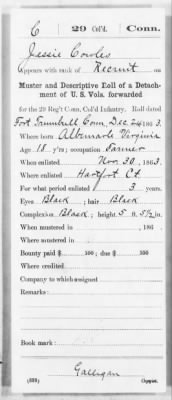 C 29 Col'd. Conn.
Jessie Cowles
Appears with rank of Recruit on
Muster and Descriptive Roll of a Detach-
ment of U. S. Vols. forwarded
for the 29 Reg't Conn. Col'd Infantry. Roll dated
Fort Trumbull Conn, Dec 24, 1863.
Where born Albemarle Virginia
Age 18 y'rs; occupation Farmer
When enlisted Nov. 30, 1863.
Where enlisted Hartford Ct.
For what period enlisted 3 years.
Eyes Black; hair Black
Complexion Black; height 5 ft. 5½ in.
When mustered in , 186 .
Where mustered in
Bounty paid $ 100; due $ 100
Where credited
Company to which assigned
Remarks:
Book mark:
Galligan
(339) Copyist.